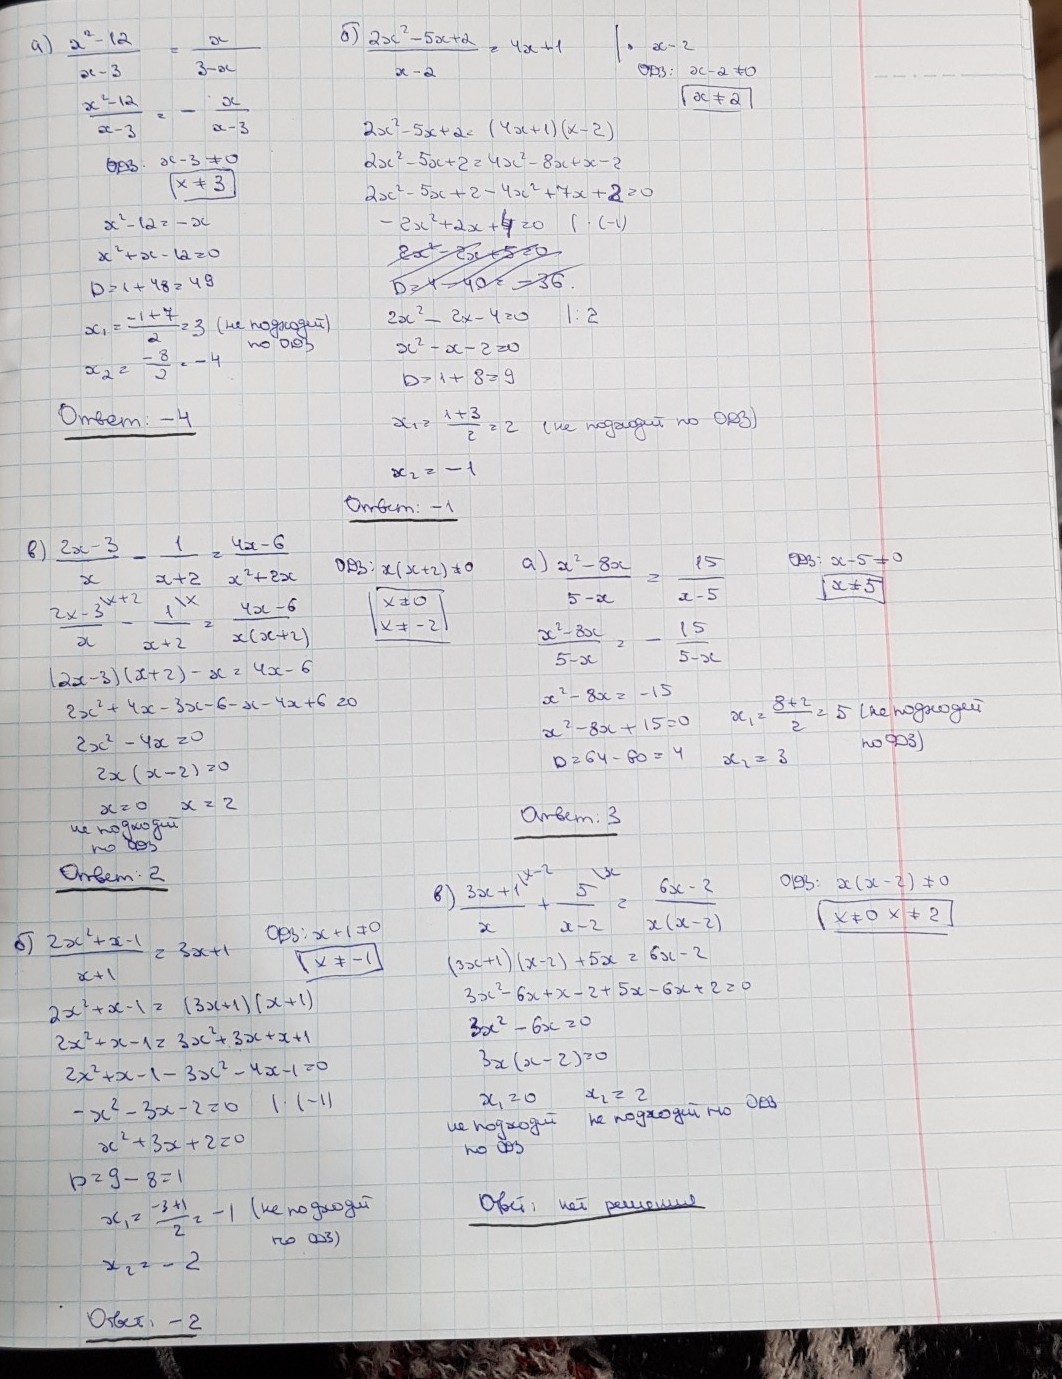 а) (x²-12)/(x-3) = x/(3-x)
(x²-12)/(x-3) = - x/(x-3)
ОДЗ: x-3≠0
x≠3
x²-12=-x
x²+x-12=0
D=1+48=49
x₁=(-1+7)/2=3 (не подходит
по ОДЗ
x₂=-8/2=-4
Ответ: -4
б) (2x²-5x+2)/(x-2) = 4x+1 |· x-2
ОДЗ: x-2≠0
x≠2
2x²-5x+2=(4x+1)(x-2)
2x²-5x+2=4x²-8x+x-2
2x²-5x+2-4x²+7x+2=0
-2x²+2x+4=0 |·(-1)
2x²-2x+5=0
D=4-40=-36.
2x²-2x-4=0 |:2
x²-x-2=0
D=1+8=9
x₁=(1+3)/2=2 (не подходит по ОДЗ)
x₂=-1
Ответ: -1
в) (2x-3)/x - 1/(x+2) = (4x-6)/(x²+2x)
ОДЗ: x(x+2)≠0
x≠0
x≠-2
(2x-3)/x \x+2 - 1/(x+2) \x = (4x-6)/(x(x+2))
(2x-3)(x+2)-x=4x-6
2x²+4x-3x-6-x-4x+6=0
2x²-4x=0
2x(x-2)=0
x=0 x=2
не подходит
по ОДЗ
Ответ: 2
а) (x²-8x)/(5-x) = 15/(x-5)
ОДЗ: x-5≠0
x≠5
(x²-8x)/(5-x) = - 15/(5-x)
x²-8x=-15
x²-8x+15=0
D=64-60=4
x₁=(8+2)/2=5 (не подходит
по ОДЗ)
x₂=3
Ответ: 3
б) (2x²+x-1)/(x+1) = 3x+1
ОДЗ: x+1≠0
x≠-1
2x²+x-1=(3x+1)(x+1)
2x²+x-1=3x²+3x+x+1
2x²+x-1-3x²-4x-1=0
-x²-3x-2=0 |·(-1)
x²+3x+2=0
D=9-8=1
x₁=(-3+1)/2=-1 (не подходит
по ОДЗ)
x₂=-2
Ответ: -2
в) (3x+1)/x \x-2 + 5/(x-2) \x = (6x-2)/(x(x-2))
ОДЗ: x(x-2)≠0
x≠0 x≠2
(3x+1)(x-2)+5x=6x-2
3x²-6x+x-2+5x-6x+2=0
3x²-6x=0
3x(x-2)=0
x₁=0 x₂=2
не подходит не подходит по ОДЗ
по ОДЗ
Ответ: нет решения